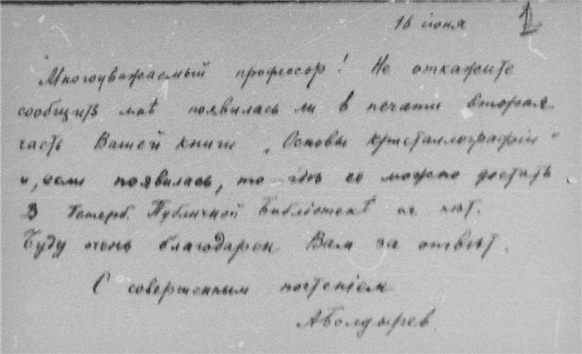 16 іюня 1
Многоуважаемый профессор! Не откажите
сообщить мнѣ появилась ли в печати вторая
часть Вашей книги „Основы кристаллографіи“
и, если появилась, то гдѣ ее можно достать
В Петерб. Публичной Библіотекѣ ея нѣт.
Буду очень благодарен Вам за отвѣт.
С совершенным почтеніем
АБолдырев